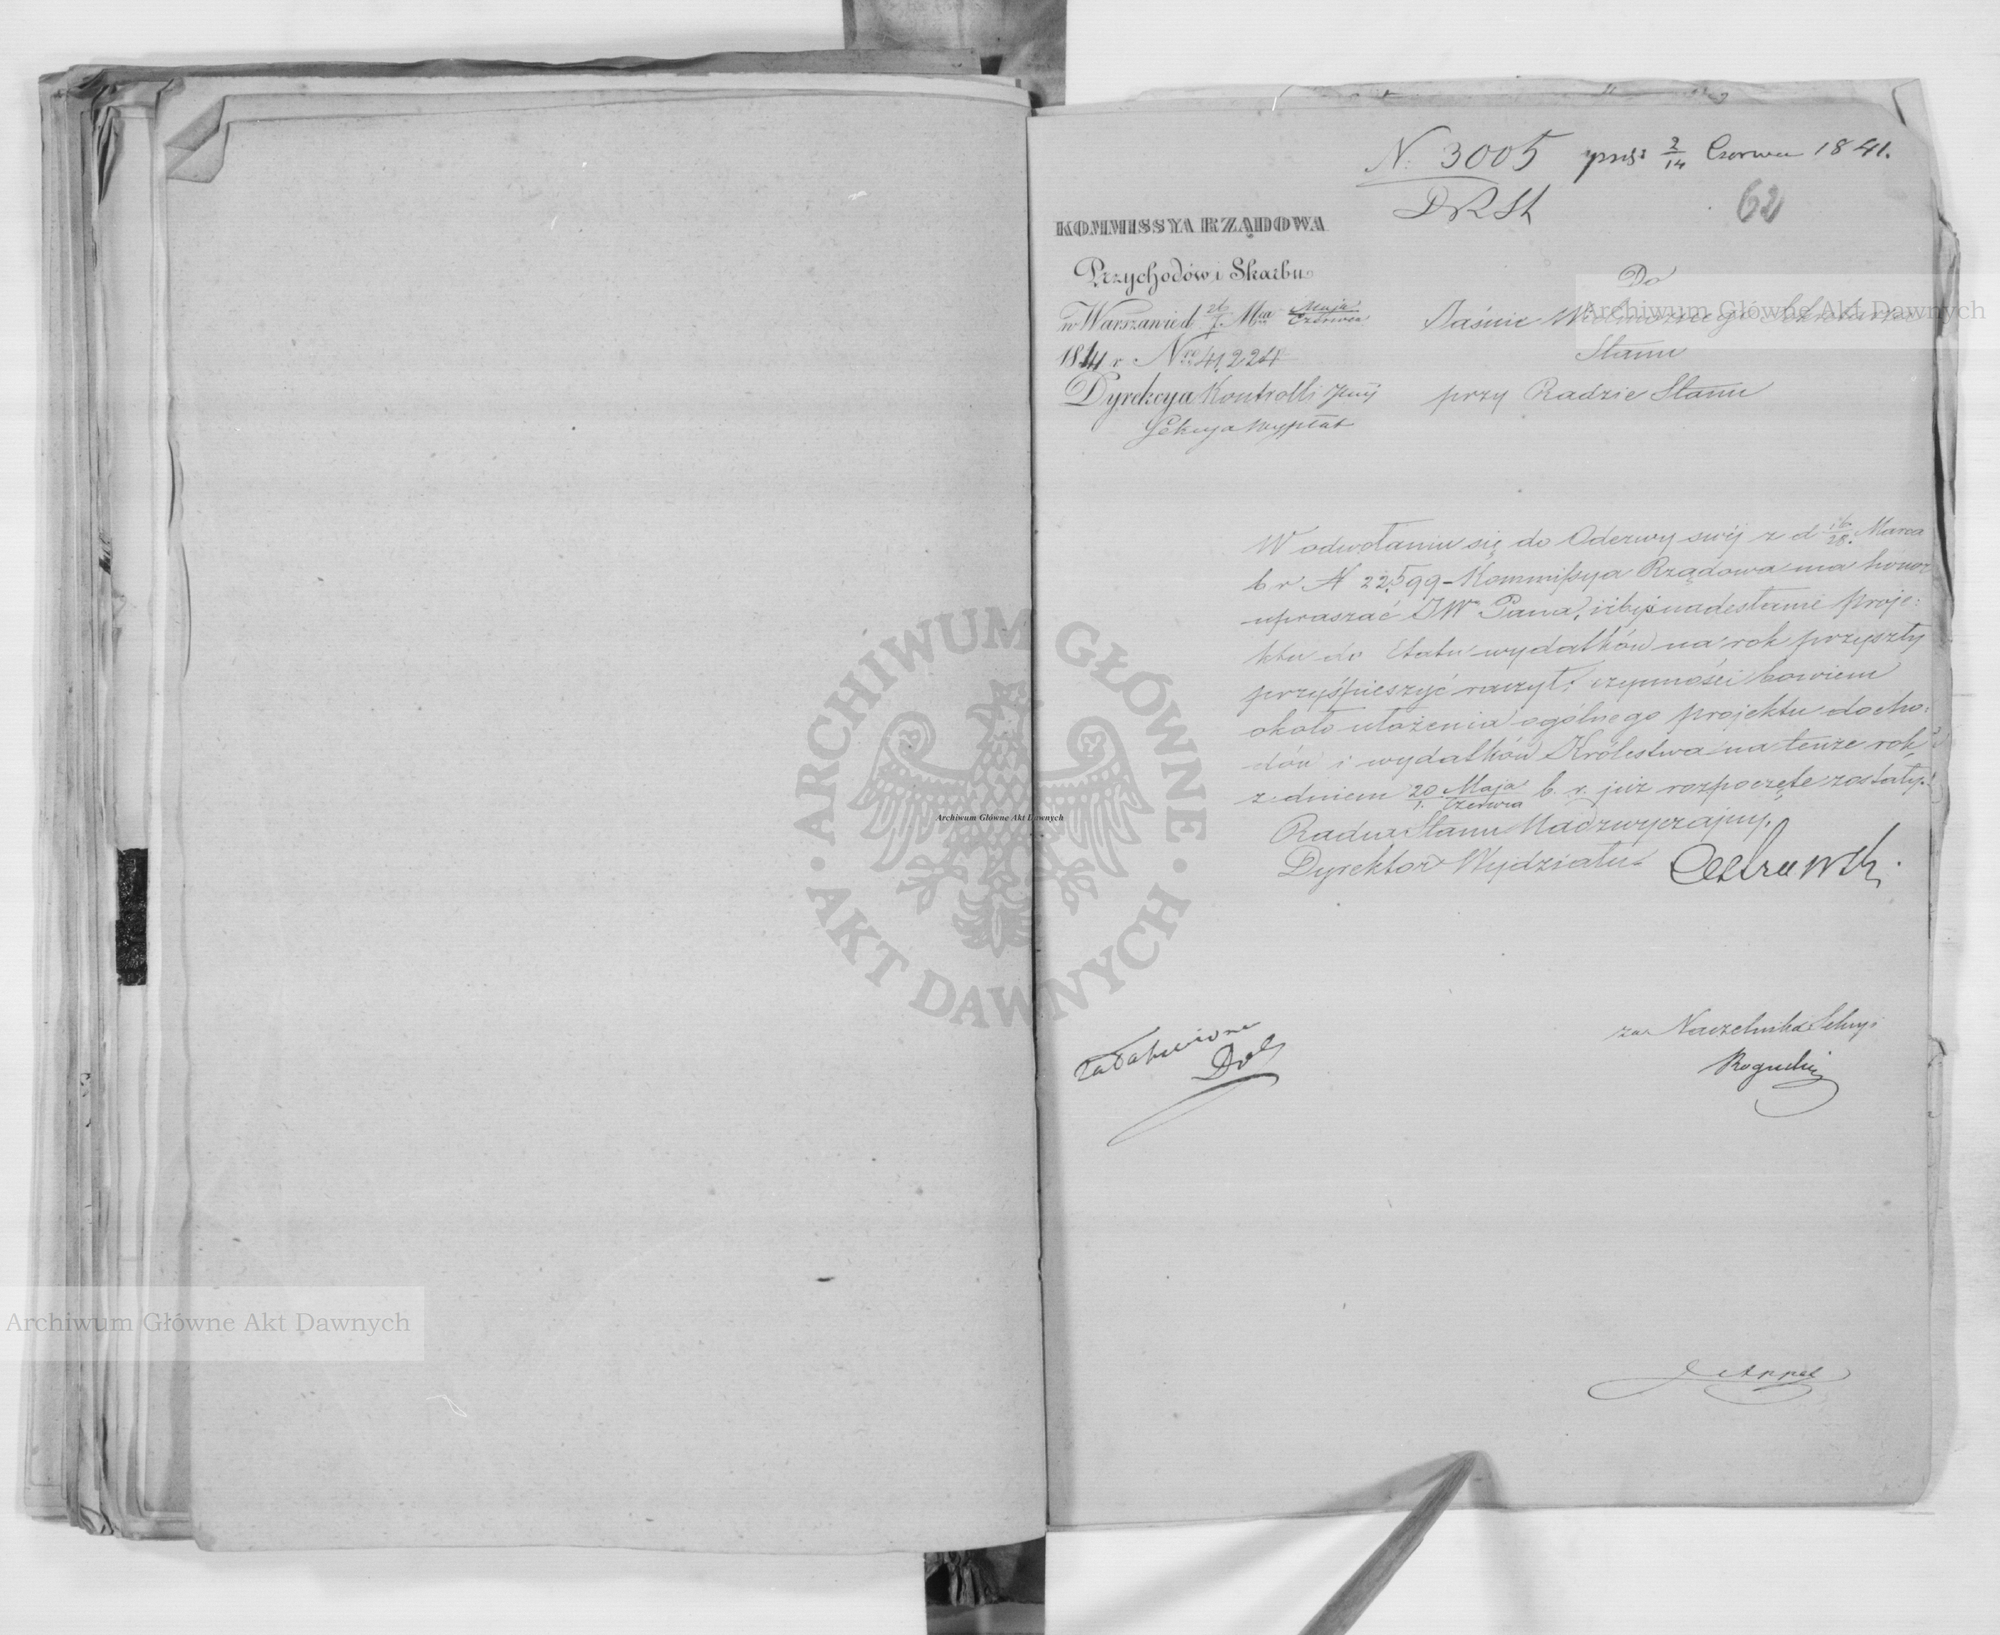 N. 3005 prez: 2/14 Czerwca 1841.
DRSt
62
KOMMISSYA RZĄDOWA
Przychodów i Skarbu
w Warszawie d. 20/1. Mca Maja/Czerwca
1841 r. Nro 41,224
Dyrekcya Kontrolli
Sekcya Wypłat
Do
Jaśnie Wielmożnego Sekretarza
Stanu
przy Radzie Stanu
W odwołaniu się do Odezwy swéj z d 16/28. Marca
b r N 22,599 - Kommissya Rządowa ma honor
upraszać JW Pana, iżby nadesłanie proje-
ktu do Etatu wydatków na rok przyszły
przyśpieszyć raczył; czynności bowiem
około ułożenia ogólnego projektu docho-
dów i wydatków Królestwa na tenże rok
z dniem 20/1. Maja/Czerwca b. r. już rozpoczęte zostały.
Radca Stanu Nadzwyczajny,
Dyrektor Wydziału
Załatwione
za Naczelnika Sekcyi
Rogucki
Appel
ARCHIWUM GŁÓWNE
AKT DAWNYCH
Archiwum Główne Akt Dawnych
Archiwum Główne Akt Dawnych
Archiwum Główne Akt Dawnych